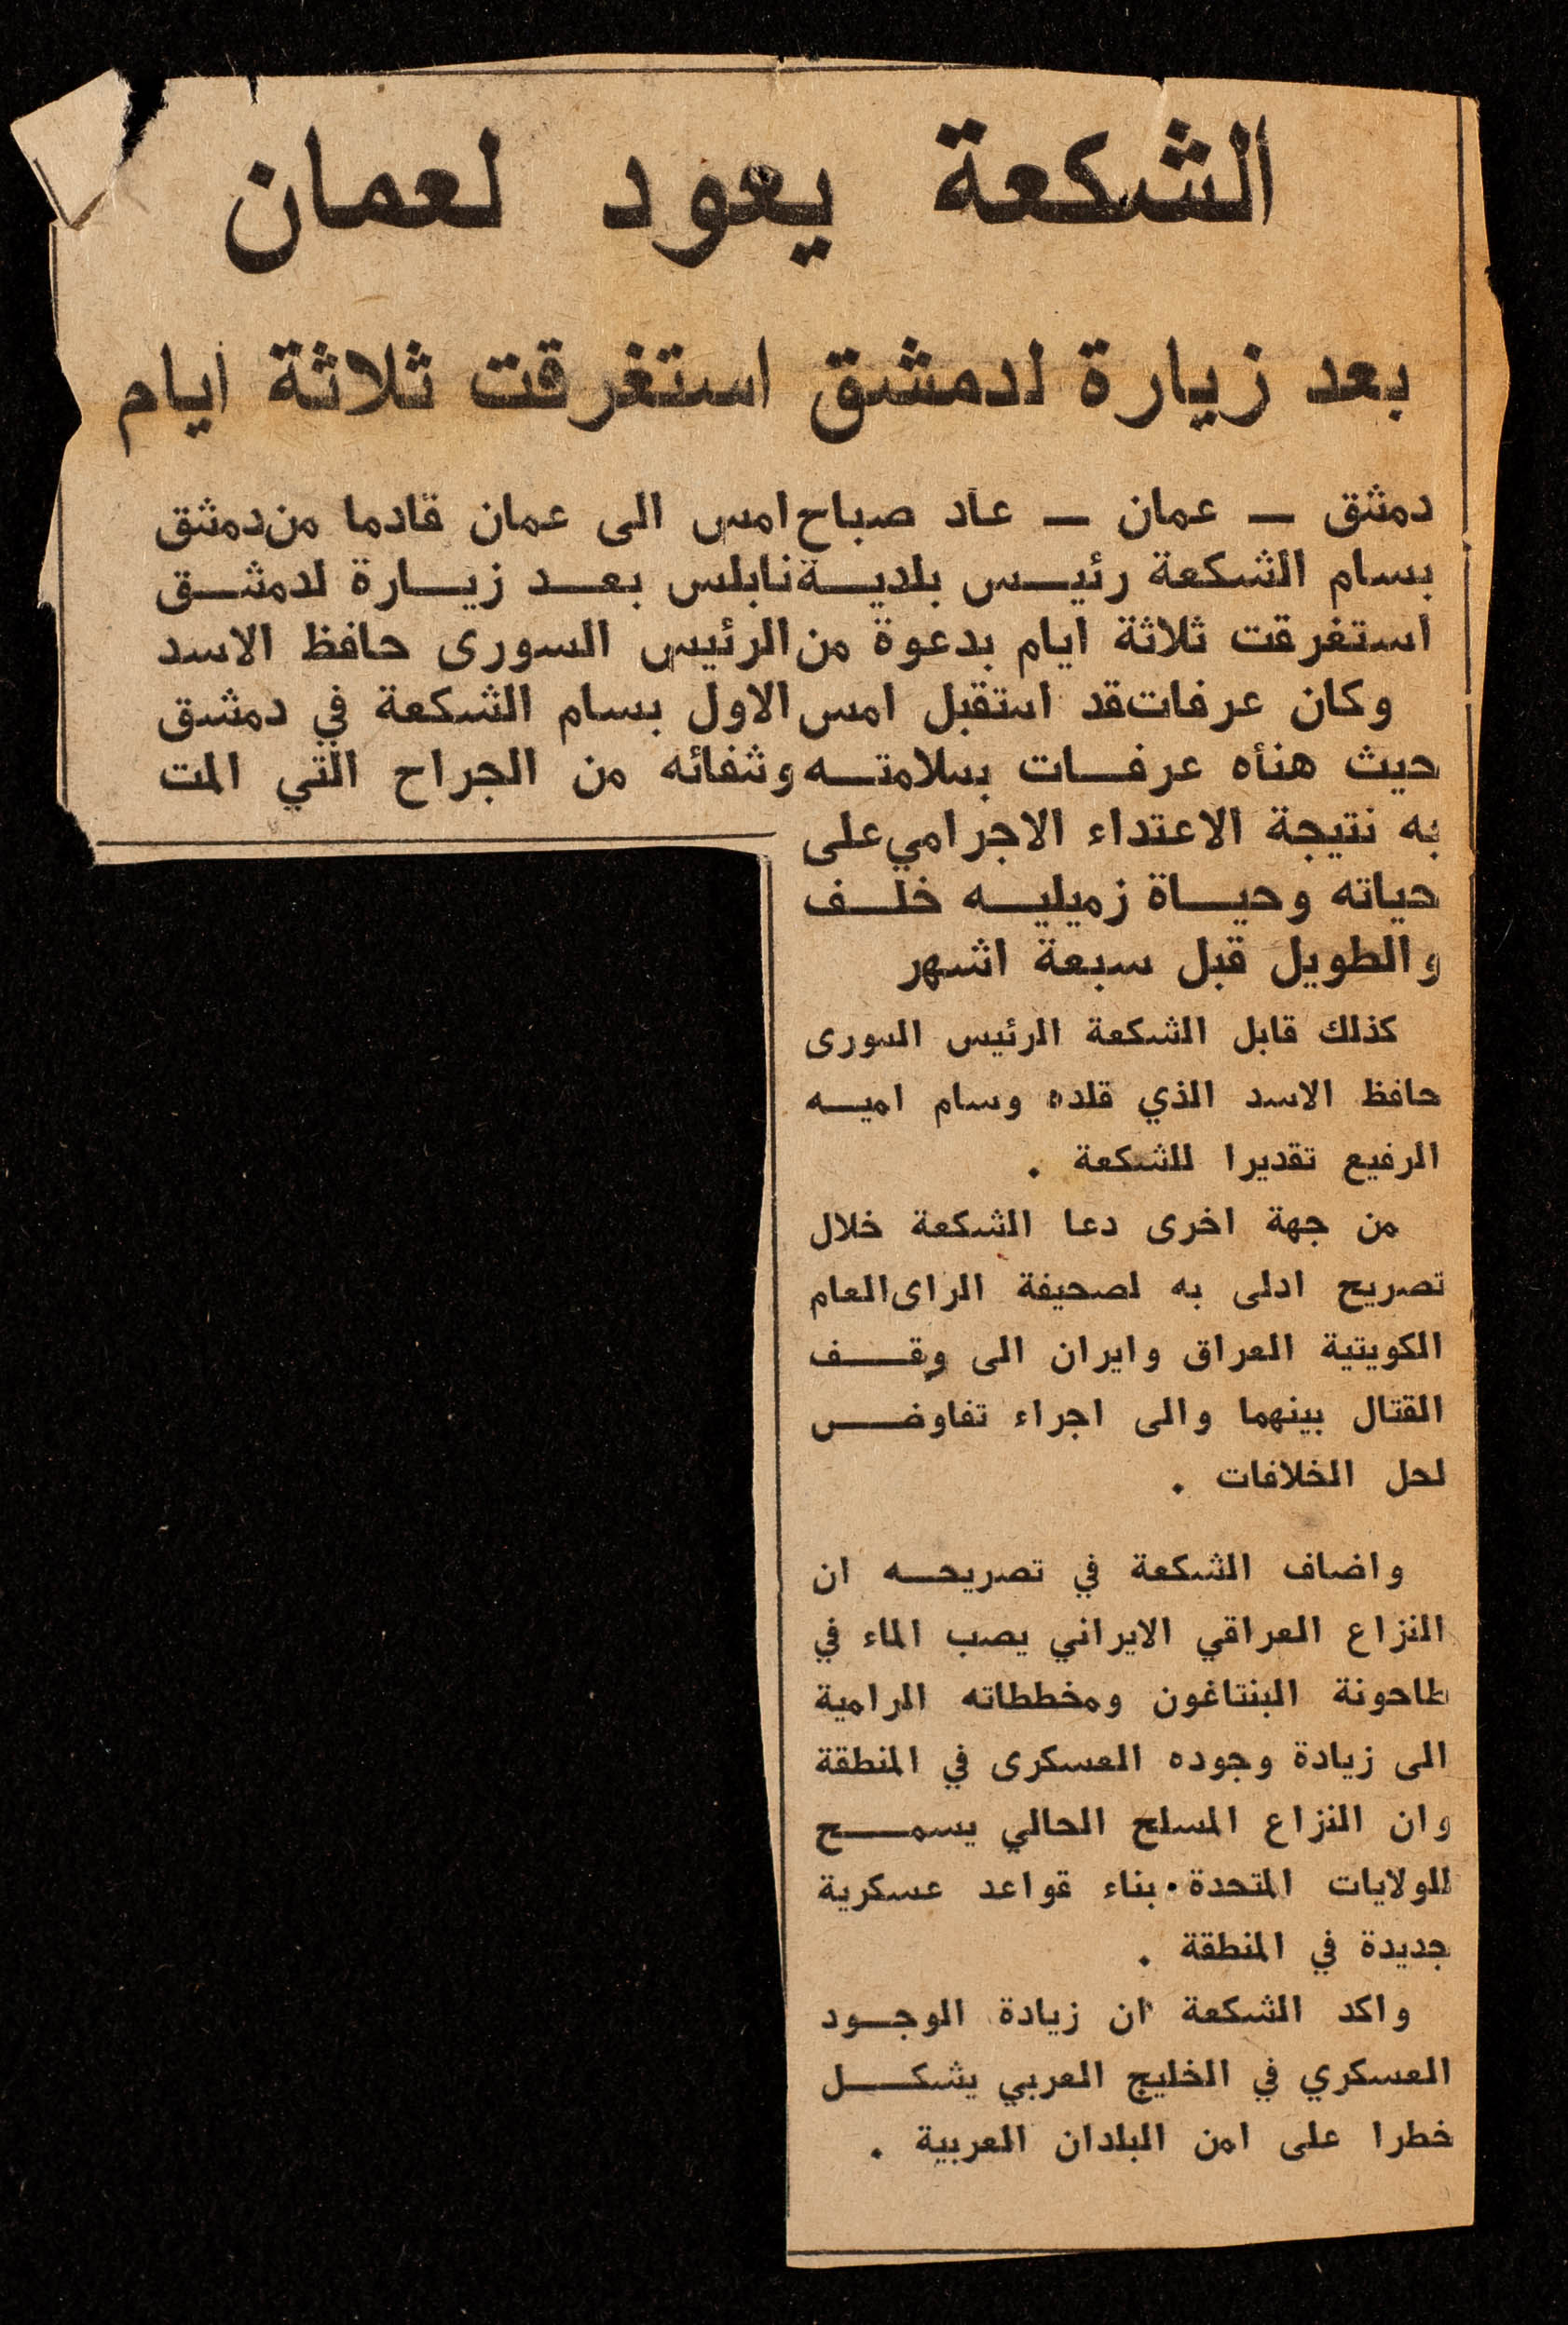 الشكعة يعود لعمان
بعد زيارة لدمشق استغرقت ثلاثة ايام
دمشق — عمان — عاد صباح امس الى عمان قادما من دمشق
بسام الشكعة رئيس بلدية نابلس بعد زيارة لدمشق
استغرقت ثلاثة ايام بدعوة من الرئيس السورى حافظ الاسد
وكان عرفات قد استقبل امس الاول بسام الشكعة في دمشق
حيث هنأه عرفات بسلامته وشفائه من الجراح التي المت
به نتيجة الاعتداء الاجرامي على
حياته وحياة زميليه خلف
والطويل قبل سبعة اشهر
كذلك قابل الشكعة الرئيس السورى
حافظ الاسد الذي قلده وسام اميه
الرفيع تقديرا للشكعة .
من جهة اخرى دعا الشكعة خلال
تصريح ادلى به لصحيفة الراى العام
الكويتية العراق وايران الى وقف
القتال بينهما والى اجراء تفاوض
لحل الخلافات .
واضاف الشكعة في تصريحه ان
النزاع العراقي الايراني يصب الماء في
طاحونة البنتاغون ومخططاته الرامية
الى زيادة وجوده العسكرى في المنطقة
وان النزاع المسلح الحالي يسمح
للولايات المتحدة . بناء قواعد عسكرية
جديدة في المنطقة .
واكد الشكعة ان زيادة الوجود
العسكري في الخليج العربي يشكل
خطرا على امن البلدان العربية .